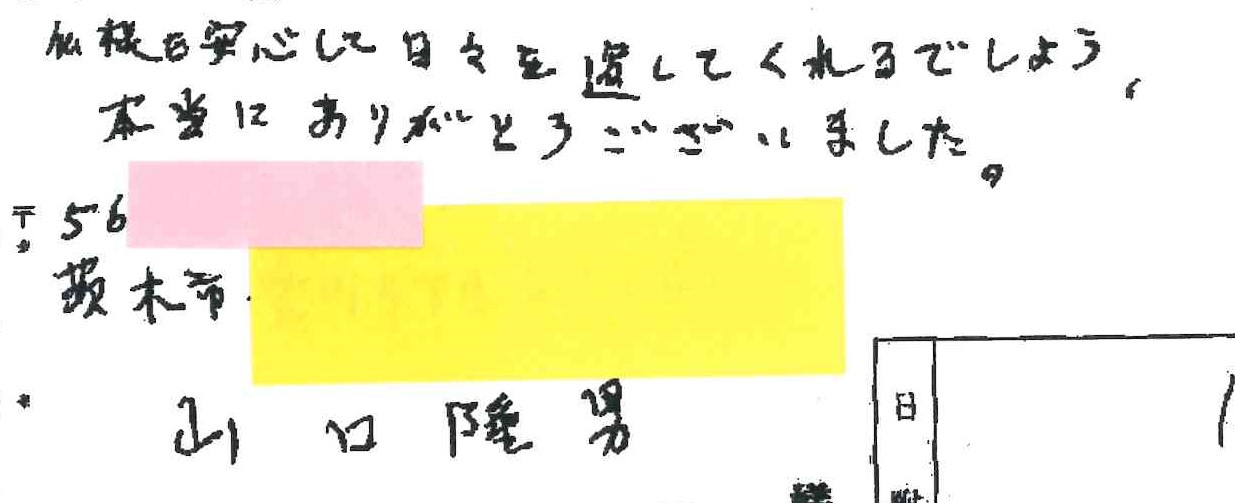 仏様も安心して日々を過してくれるでしよう、
本当にありがとうございました。
〒56
茨木市
山口隆男
日
様